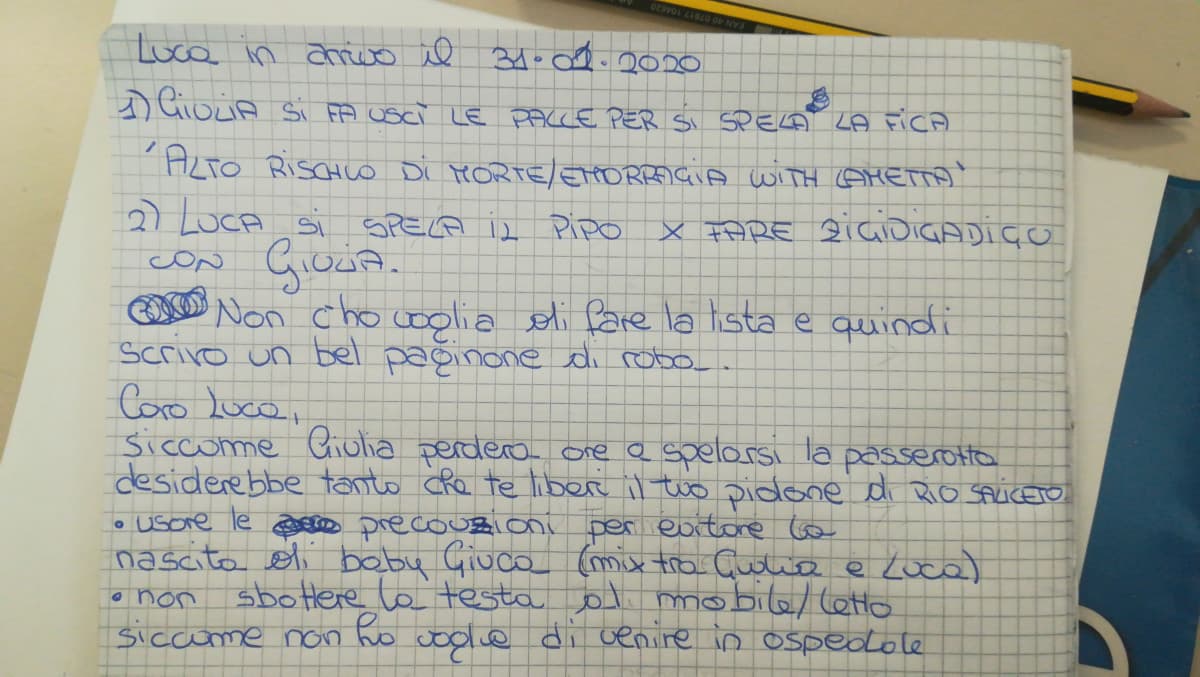 EAN 40 07817 104620
Luca in arrivo il 31.01.2020
1) GiULiA Si FA USCÌ LE PALLE PER Si SPELA LA FiCA
'ALTO RiSCHiO Di MORTE/EMORRAGiA WiTH LAMETTA'
2) LUCA Si SPELA iL PiPO X FARE ZiGiDiGADiGO
CON GiULiA.
Non cho voglia di fare la lista e quindi
scrivo un bel paginone di roba.
Caro Luca,
siccome Giulia perdera ore a spelarsi la passerotta
desiderebbe tanto che te liberi il tuo pidone di RiO SALiCETO
• usare le precauzioni per evitare la
nascita di baby Giuca (mix tra Giulia e Luca)
• non sbattere la testa al mobile/letto
siccome non ho voglie di venire in ospedale